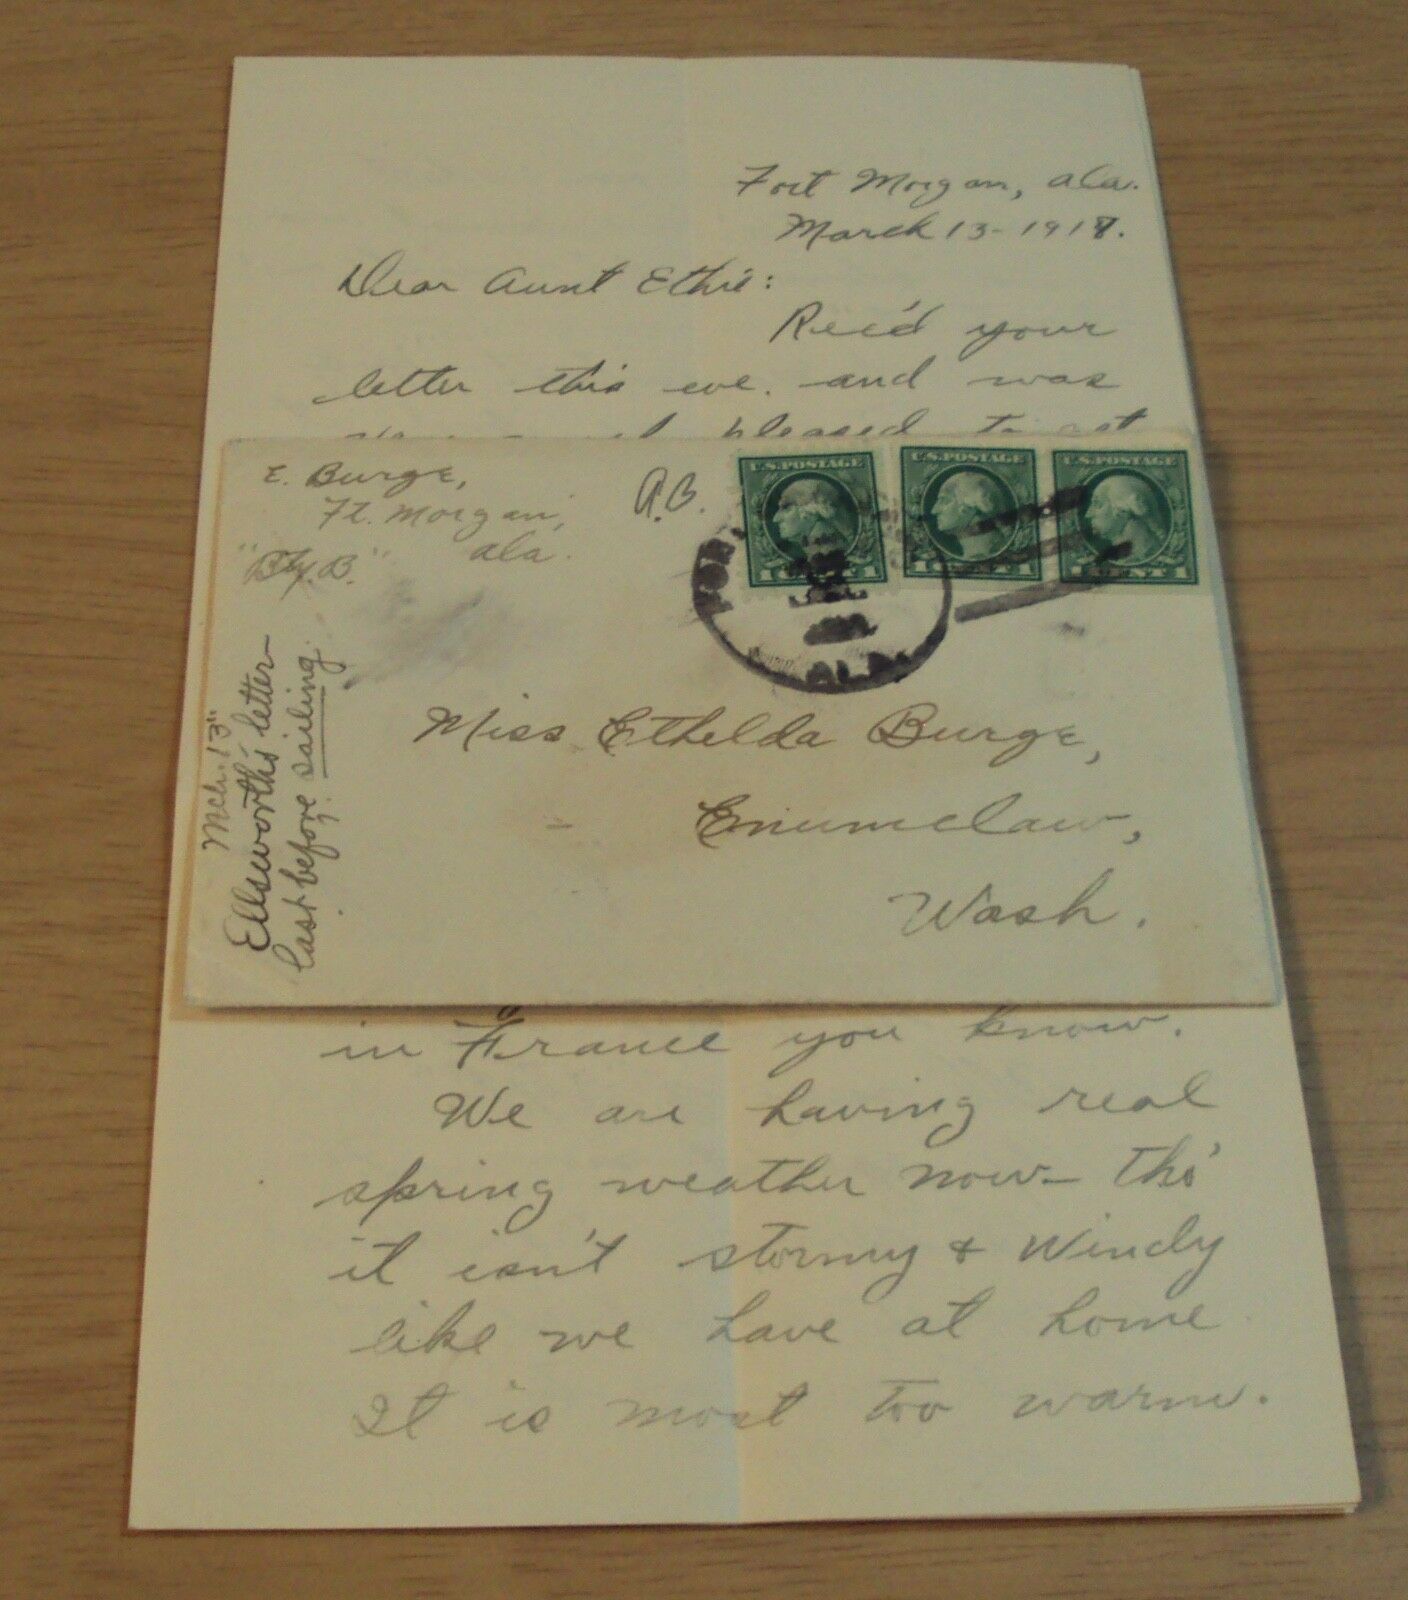 Fort Morgan, Ala.
March 13-1917.
Dear Aunt Ethie:
Rec'd your
letter this eve. and was
pleased to get
E. Burge,
Ft. Morgan,
Ala.
"Bty. B."
A.B.
U.S. POSTAGE
1 CENT 1
U.S. POSTAGE
1 CENT 1
U.S. POSTAGE
1 CENT 1
ALA.
Miss Ethelda Burge,
Enumclaw,
Wash.
Mch. 13"
Ellsworth's letter-
last before sailing
in France you know.
We are having real
spring weather now- tho'
it isn't stormy & windy
like we have at home
It is most too warm.